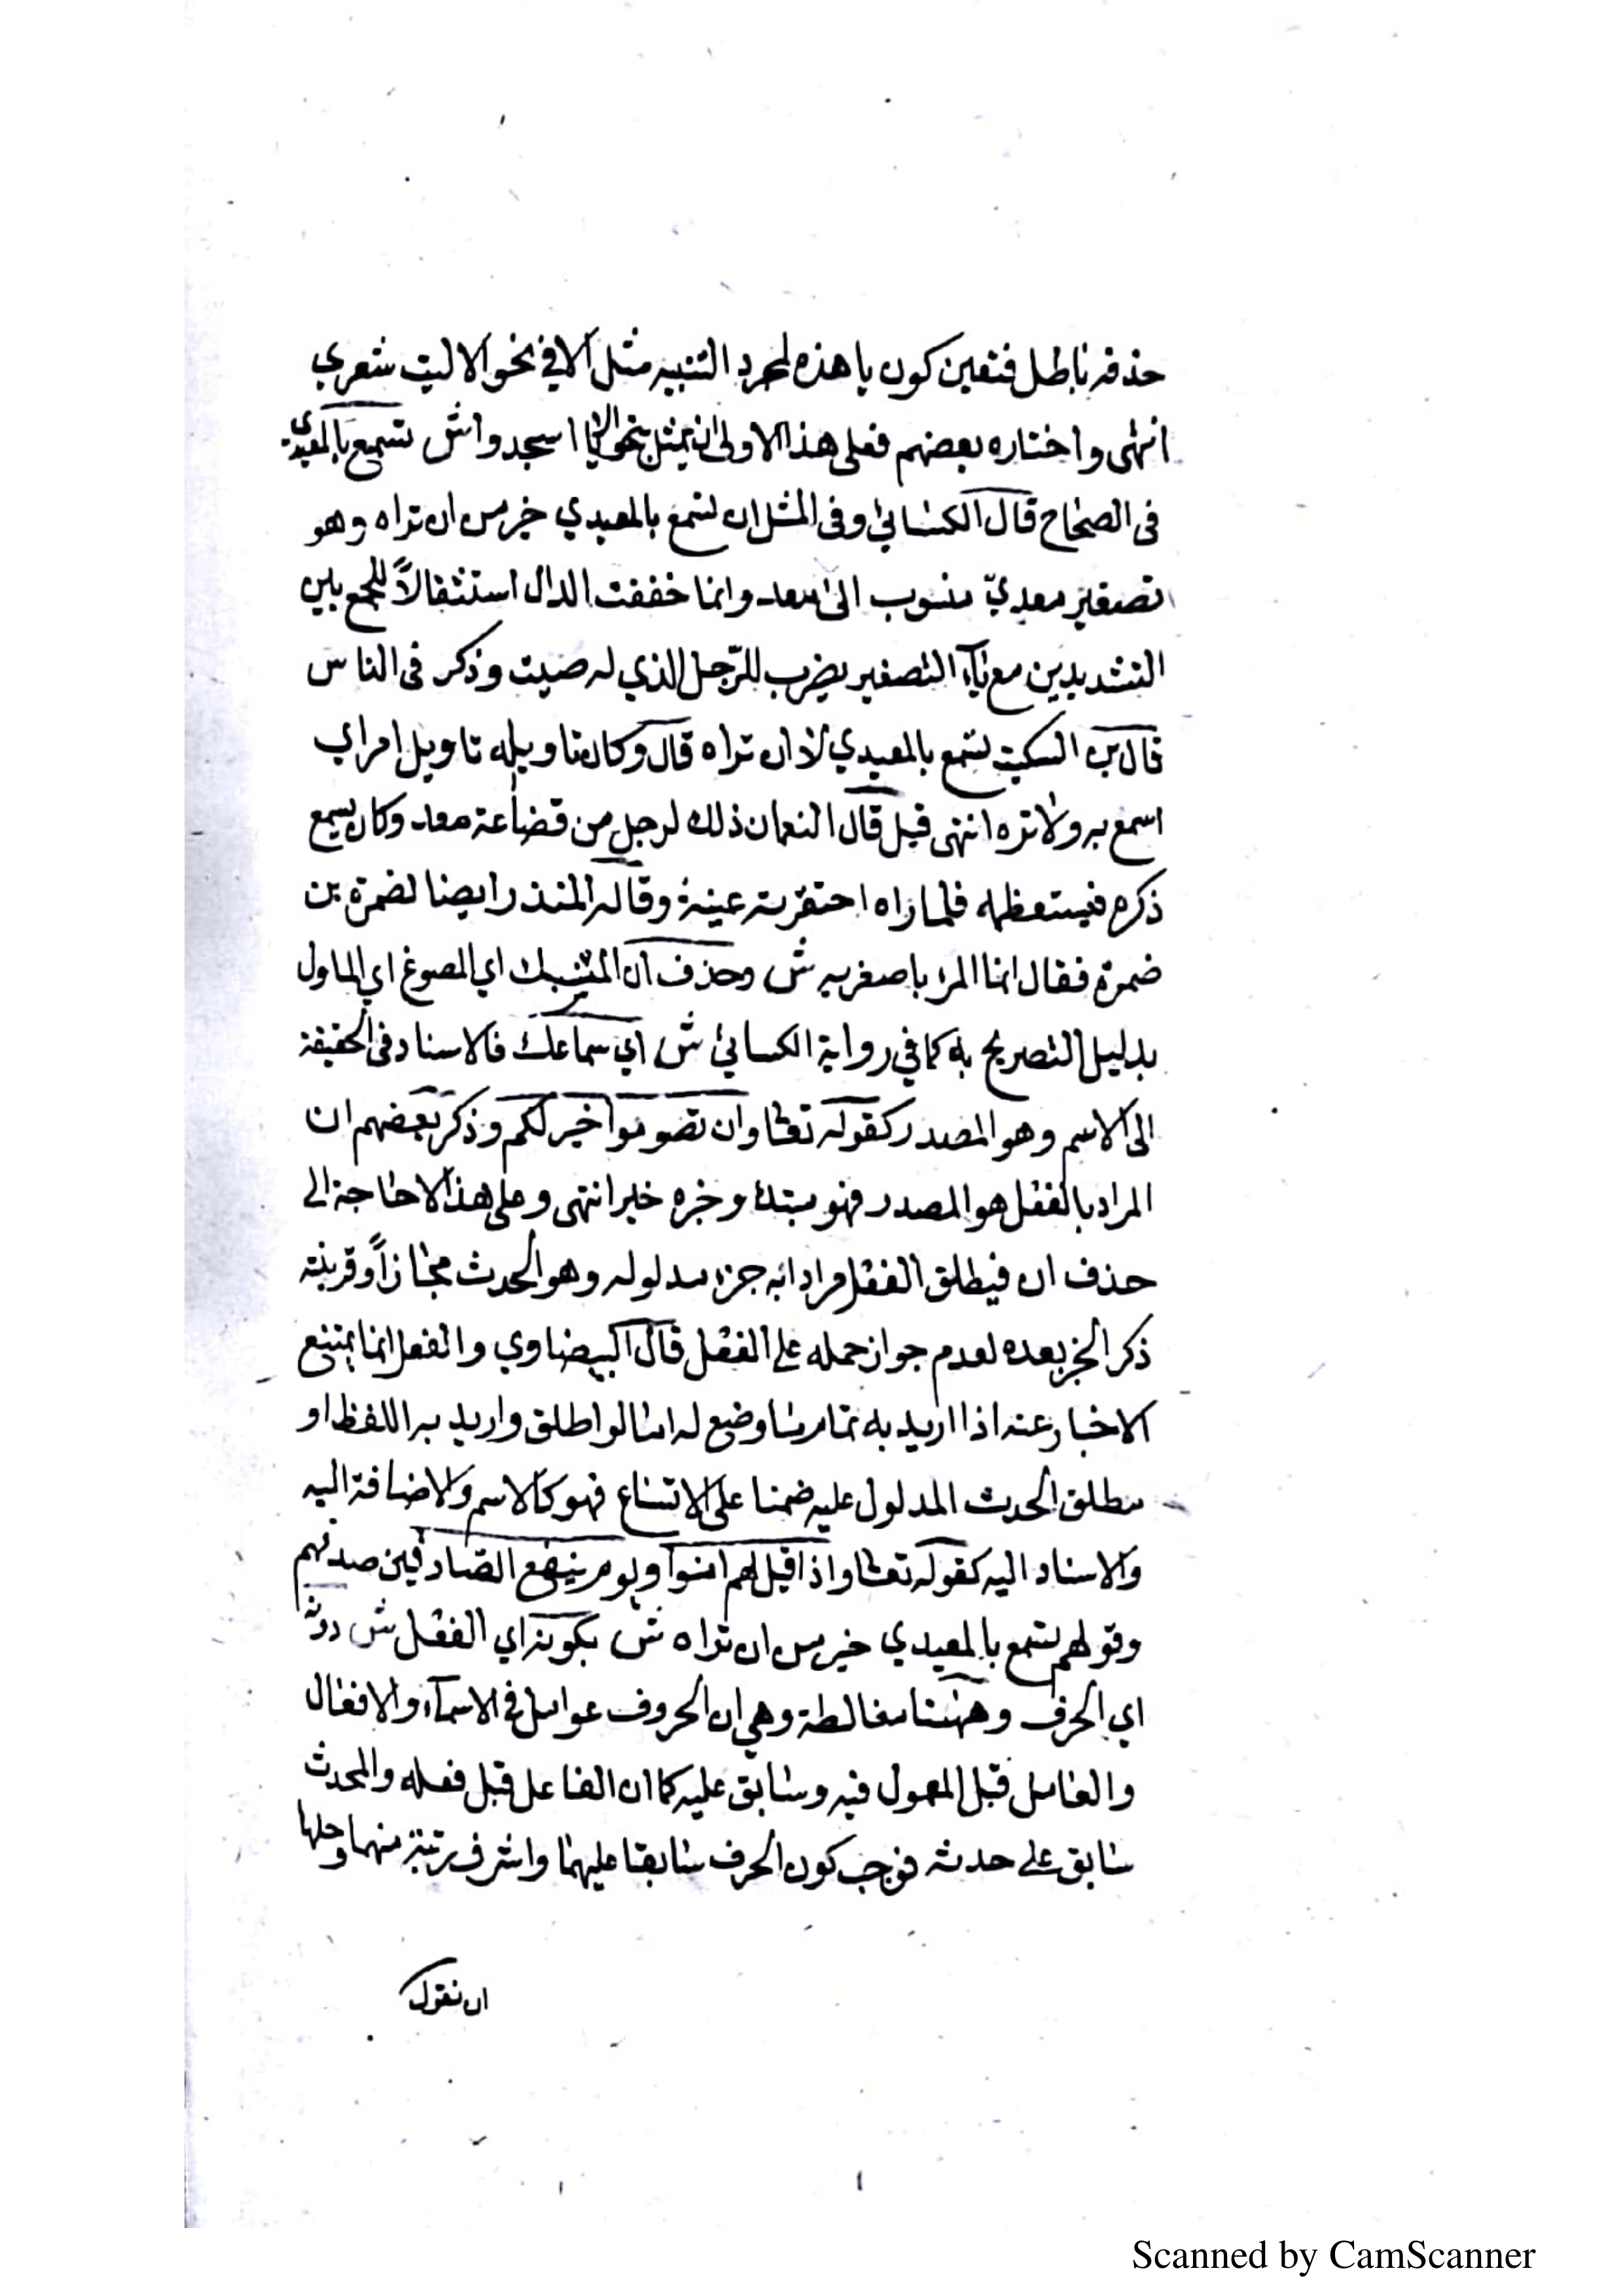 حذفه باطل فتعين كون يا هذه لمجرد التنبيه مثل ألا في نحو الا ليت شعري
انتهى واختاره بعضهم فعلى هذا الاولى ان يمثل بنحو الا يا اسجدوا ش تسمع بالمعيدي
فى الصحاح قال الكسائي وفى المثل ان تسمع بالمعيدي خير من ان تراه وهو
تصغير معديّ منسوب الى معد وانما خففت الدال استثقالاً للجمع بين
التشديدين مع يآء التصغير يضرب للرّجل الذي له صيت وذكر فى الناس
قال بن السكيت تسمع بالمعيدي لا ان تراه قال وكان تاويله تاويل امر اي
اسمع به ولا تره انتهى قيل قال النعمان ذلك لرجل من قضاعة معد وكان يسمع
ذكره فيستعظمه فلما راه احتقرته عينهُ وقاله المنذر ايضا لضمرة بن
ضمرة فقال انما المرء باصغريه ش وحذف أن المنسبك اي المصوغ اي الماول
بدليل التصريح به كما في رواية الكسائي ش اي سماعك فالاسناد فى الحقيقة
الى الاسم وهو المصدر كقوله تعالى وان تصوموا خير لكم وذكر بعضهم ان
المراد بالفعل هو المصدر فهو مبتدا وخبره خير انتهى وعلى هذا لا حاجة الى
حذف ان فيطلق الفعل مرادا به جزء مدلوله وهو الحدث مجازاً وقرينته
ذكر الخبر بعده لعدم جواز حمله على الفعل قال البيضاوي والفعل انما يمتنع
الاخبار عنه اذا اريد به تمام ما وضع له اما لو اطلق واريد به اللفظ او
مطلق الحدث المدلول عليه ضمنا على الاتساع فهو كالاسم والاضافة اليه
والاسناد اليه كقوله تعالى واذا قيل لهم امنوا ويوم ينفع الصّادقين صدقهم
وقولهم تسمع بالمعيدي خير من ان تراه ش بكونه اي الفعل ش دونه
اي الحرف وههنا مغالطة وهي ان الحروف عوامل في الاسمآء والافعال
والعامل قبل المعمول فيه وسابق عليه كما ان الفاعل قبل فعله والمحدث
سابق على حدثه فوجب كون الحرف سابقا عليهما واشرف رتبة منهما وحلها
ان نقول
Scanned by CamScanner